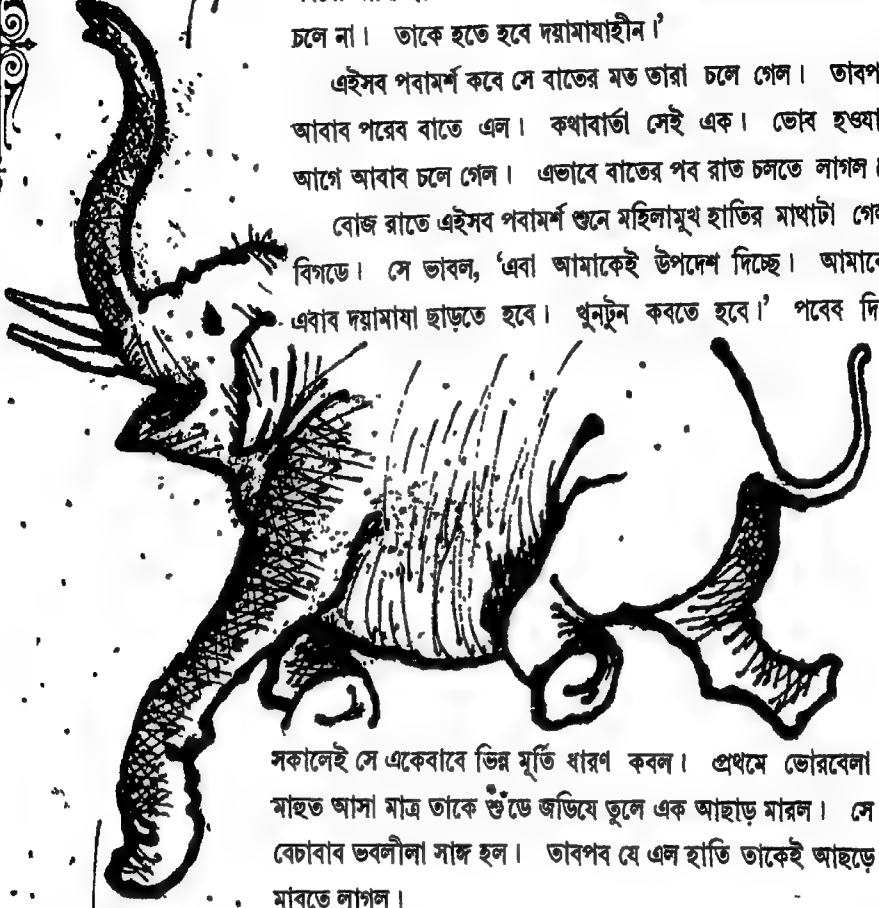 চলে না। তাকে হতে হবে দয়ামাযাহীন।’
এইসব পবামর্শ কবে সে বাতের মত তারা চলে গেল। তাবপ
আবাব পরেব বাতে এল। কথাবার্তা সেই এক। ভোব হওযা
আগে আবাব চলে গেল। এভাবে বাতের পব রাত চলতে লাগল।
বোজ রাতে এইসব পবামর্শ শুনে মহিলামুখ হাতির মাথাটা গেল
বিগডে। সে ভাবল, ‘এবা আমাকেই উপদেশ দিচ্ছে। আমাকে
এবাব দয়ামাযা ছাড়তে হবে। খুনটুন কবতে হবে।’ পবেব দি
সকালেই সে একেবাবে ভিন্ন মূর্তি ধারণ কবল। প্রথমে ভোরবেলা
মাহুত আসা মাত্র তাকে শুঁডে জডিযে তুলে এক আছাড় মারল। সে
বেচাবাব ভবলীলা সাঙ্গ হল। তাবপব যে এল হাতি তাকেই আছড়ে
মাবতে লাগল।